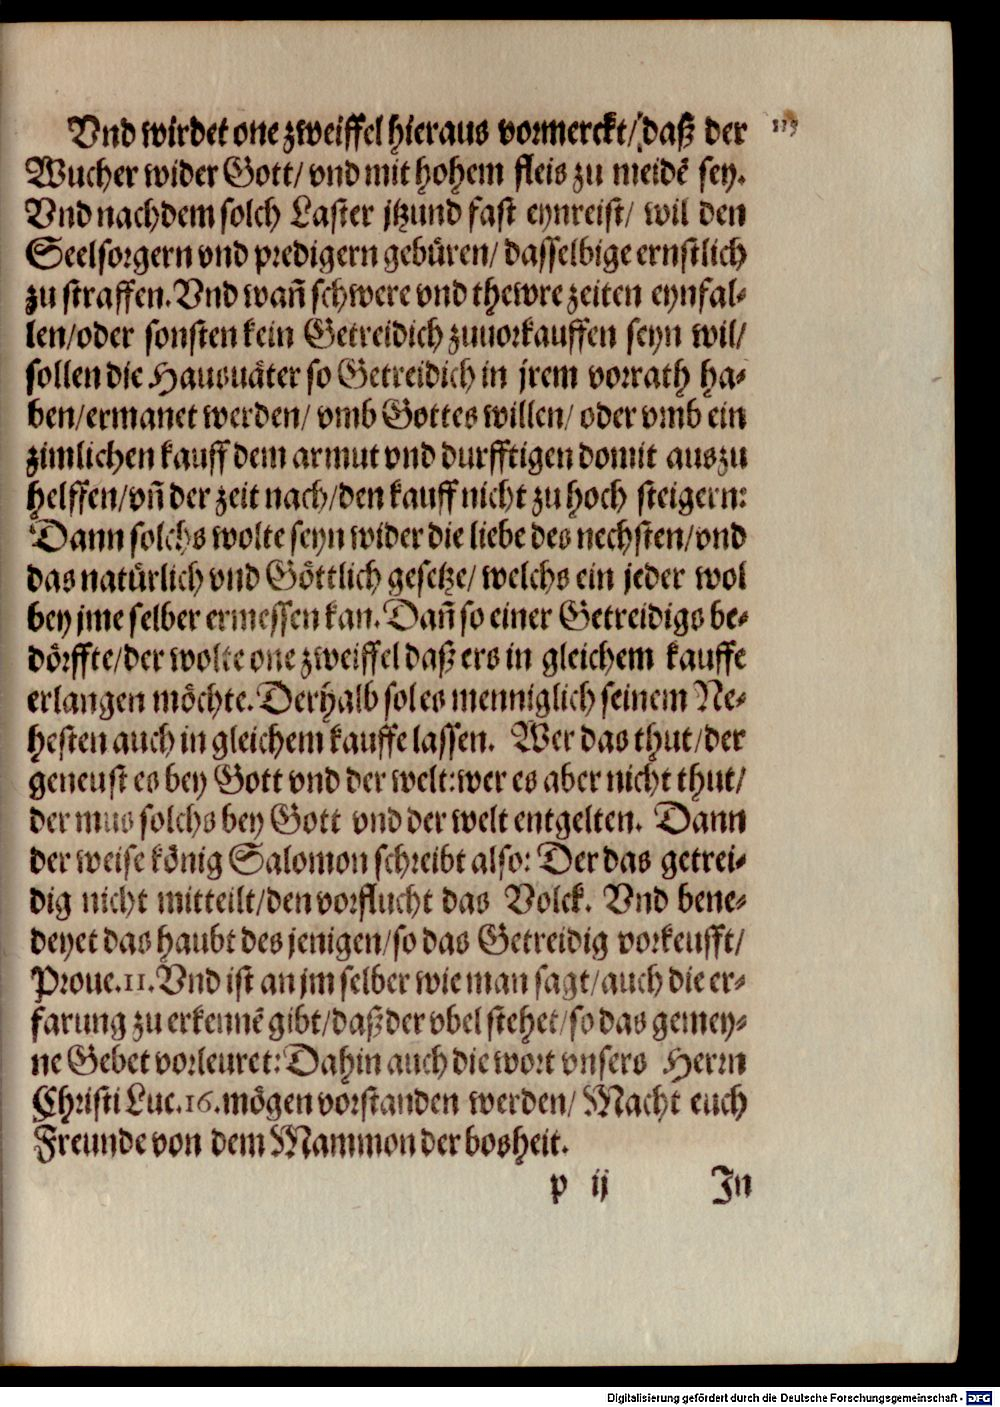 Vnd wirdet one zweiffel hieraus vormerckt/ daß der
Wucher wider Gott/ vnd mit hohem fleis zu meidē sey.
Vnd nachdem solch Laster jtzund fast eynreist/ wil den
Seelsorgern vnd predigern gebüren/ dasselbige ernstlich
zu straffen. Vnd wañ schwere vnd thewre zeiten eynfal-
len/oder sonsten kein Getreidich zuuorkauffen seyn wil/
sollen die Hausuäter so Getreidich in jrem vorrath ha-
ben/ermanet werden/ vmb Gottes willen/ oder vmb ein
zimlichen kauff dem armut vnd durfftigen domit auszu
helffen/vñ der zeit nach/den kauff nicht zu hoch steigern:
Dann solchs wolte seyn wider die liebe des nechsten/vnd
das natürlich vnd Göttlich gesetze/ welchs ein jeder wol
bey jme selber ermessen kan. Dañ so einer Getreidigs be-
dörffte/der wolte one zweiffel daß ers in gleichem kauffe
erlangen möchte. Derhalb sol es menniglich seinem Ne-
hesten auch in gleichem kauffe lassen. Wer das thut/der
geneust es bey Gott vnd der welt: wer es aber nicht thut/
der mus solchs bey Gott vnd der welt entgelten. Dann
der weise könig Salomon schreibt also: Der das getrei-
dig nicht mitteilt/den vorflucht das Volck. Vnd bene-
deyet das haubt des jenigen/so das Getreidig vorkeufft/
Proue.11. Vnd ist an jm selber wie man sagt/auch die er-
farung zu erkennē gibt/daß der vbel stehet/so das gemey-
ne Gebet vorleuret: Dahin auch die wort vnsers Herrn
Christi Luc.16. mögen vorstanden werden/ Macht euch
Freunde von dem Mammon der bosheit.
p ij In
Digitalisierung gefördert durch die Deutsche Forschungsgemeinschaft - DFG